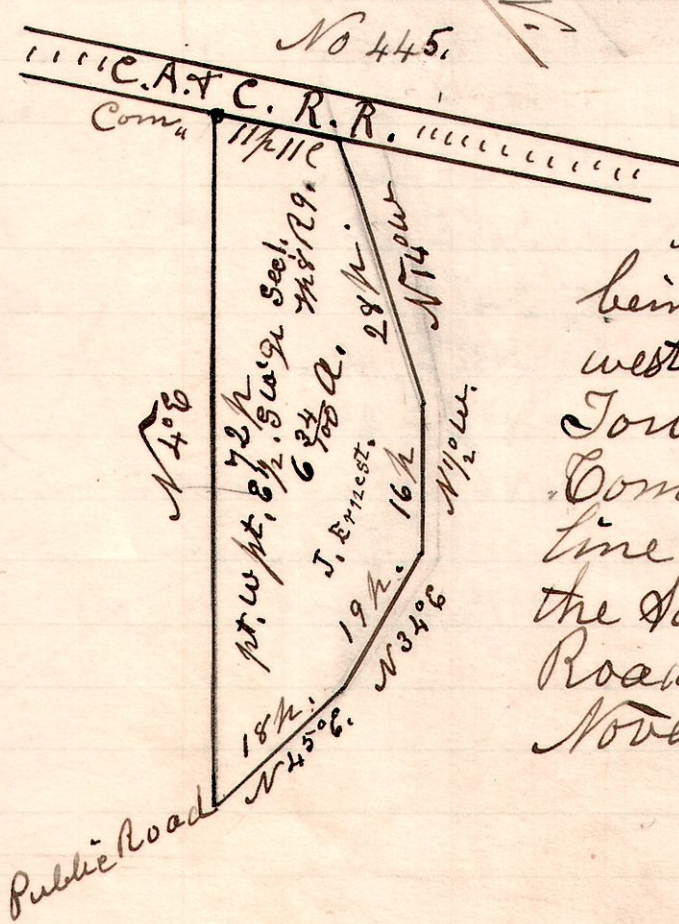 No 445.
C. A. & C. R. R.
Com"
11p 11l
N 4° E
72 p
pt. w pt. E ½. S W qr Sec 1.
Tp 8 R 9.
6 34/100 a.
J. Ernest.
28 p.
N 14° W
16 p
N ½° W.
19 p.
N 34° E
18 p.
N 45° E.
Public Road
west
line
the
Road